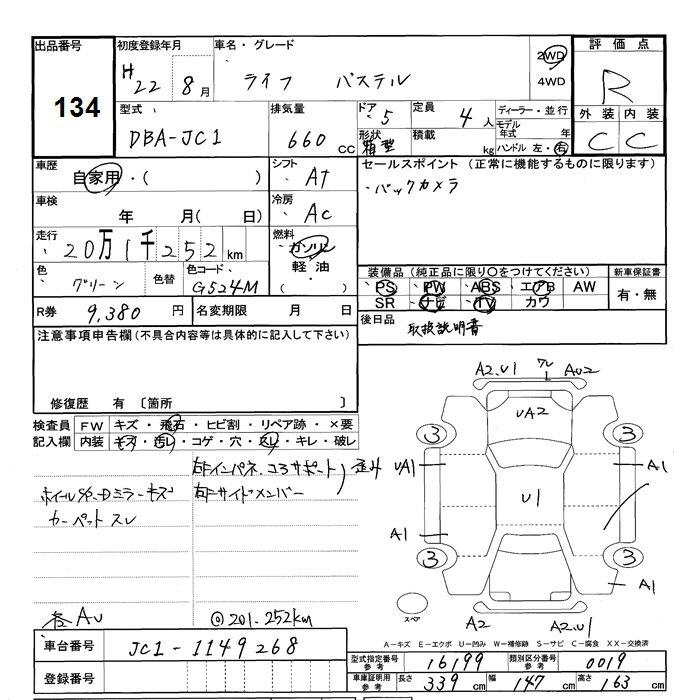 出品番号 初度登録年月 車名・グレード 評価点
134
H22 8月 ライフ パステル 2WD 4WD R
型式 排気量 ドア 定員 ディーラー・並行 外装 内装
DBA-JC1 660cc ・5 4人 モデル年式 年 C C
形状 箱型 積載 kg ハンドル 左・右
車歴 自家用・( ) シフト ・AT セールスポイント (正常に機能するものに限ります)
・バックカメラ
車検 年 月( 日) 冷房 ・AC
走行 20万1千252km 燃料 ガソリン
軽油
・( )
色 グリーン 色替 色コード・ G524M
装備品 (純正品に限り○をつけてください) 新車保証書
PS PW ABS エアB AW 有・無
SR ナビ TV カワ
R券 9,380円 名変期限 月 日
後日品 取扱説明書
注意事項申告欄(不具合内容等は具体的に記入して下さい)
修復歴 有 〔箇所 〕
検査員 FW キズ・飛石・ヒビ割・リペア跡・×要
記入欄 内装 キズ・汚レ・コゲ・穴・スレ・キレ・破レ
ドミラーキズ
カーペット スレ
インパネ. コアサポート 歪み
サイドメンバー
A2.U1 AU2
UA2
3 3
UA1 A1
U1
A1
3 3
A1
スペア
A2 A2.U1
◎201.252km
A－キズ E－エクボ U－凹み W－補修跡 S－サビ C－腐食 XX－交換済
車台番号 JC1-1149268
登録番号
型式指定番号 参考 16199 類別区分番号 参考 0019
車庫証明用 参考 長さ 339cm 幅 147cm 高さ 163cm